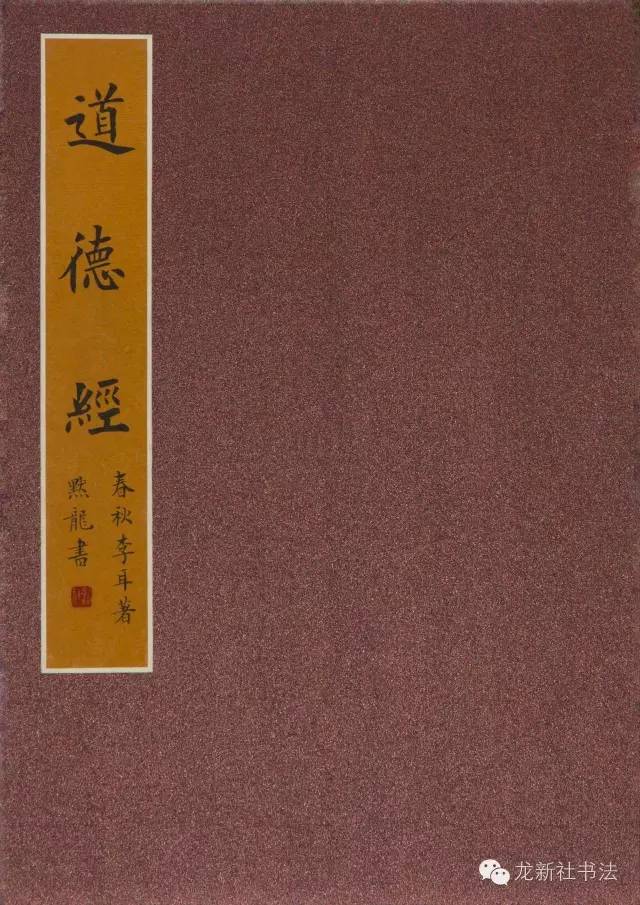 道德經
春秋李耳著
黙龍書
龙新社书法